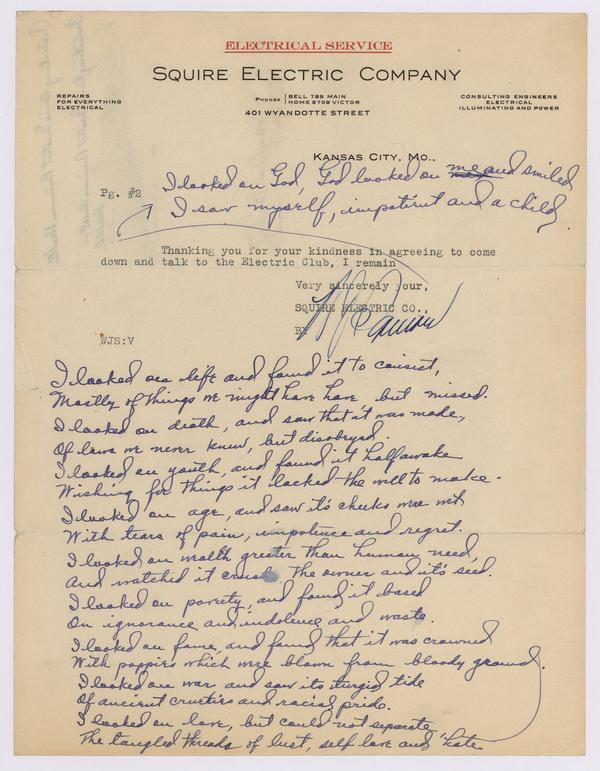 ELECTRICAL SERVICE
SQUIRE ELECTRIC COMPANY
REPAIRS
FOR EVERYTHING
ELECTRICAL
PHONES BELL 789 MAIN
HOME 6709 VICTOR
401 WYANDOTTE STREET
CONSULTING ENGINEERS
ELECTRICAL
ILLUMINATING AND POWER
KANSAS CITY, MO.,
Pg. #2
I looked on God, God looked on me and smiled
I saw myself, impotent and a child
Thanking you for your kindness in agreeing to come
down and talk to the Electric Club, I remain
Very sincerely your,
SQUIRE ELECTRIC CO.,
BY
WJS:V
I looked on life and found it to consist,
Mostly of things we might have have but missed.
I looked on death, and saw that it was made,
Of laws we never knew, but disobeyed.
I looked on youth, and found it half awake
Wishing for things it lacked the will to make.
I looked on age, and saw it's cheeks were wet
With tears of pain, impotence and regret.
I looked on wealth greater than human need,
And watched it the owner and it's seed.
I looked on poverty, and found it based
On ignorance and indolence and waste.
I looked on fame, and found that it was crowned
With poppies which were blown from bloody ground.
I looked on war and saw its turgid tide
Of ancient cruelties and racial pride.
I looked on love, but could not separate
The tangled threads of lust, self love and hate